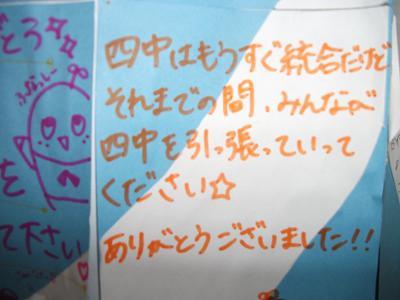 とう☆☆
ふなっしー
を
て下さい
四中はもうすぐ統合だけど
それまでの間、みんなが
四中を引っ張っていって
ください☆
ありがとうございました!!